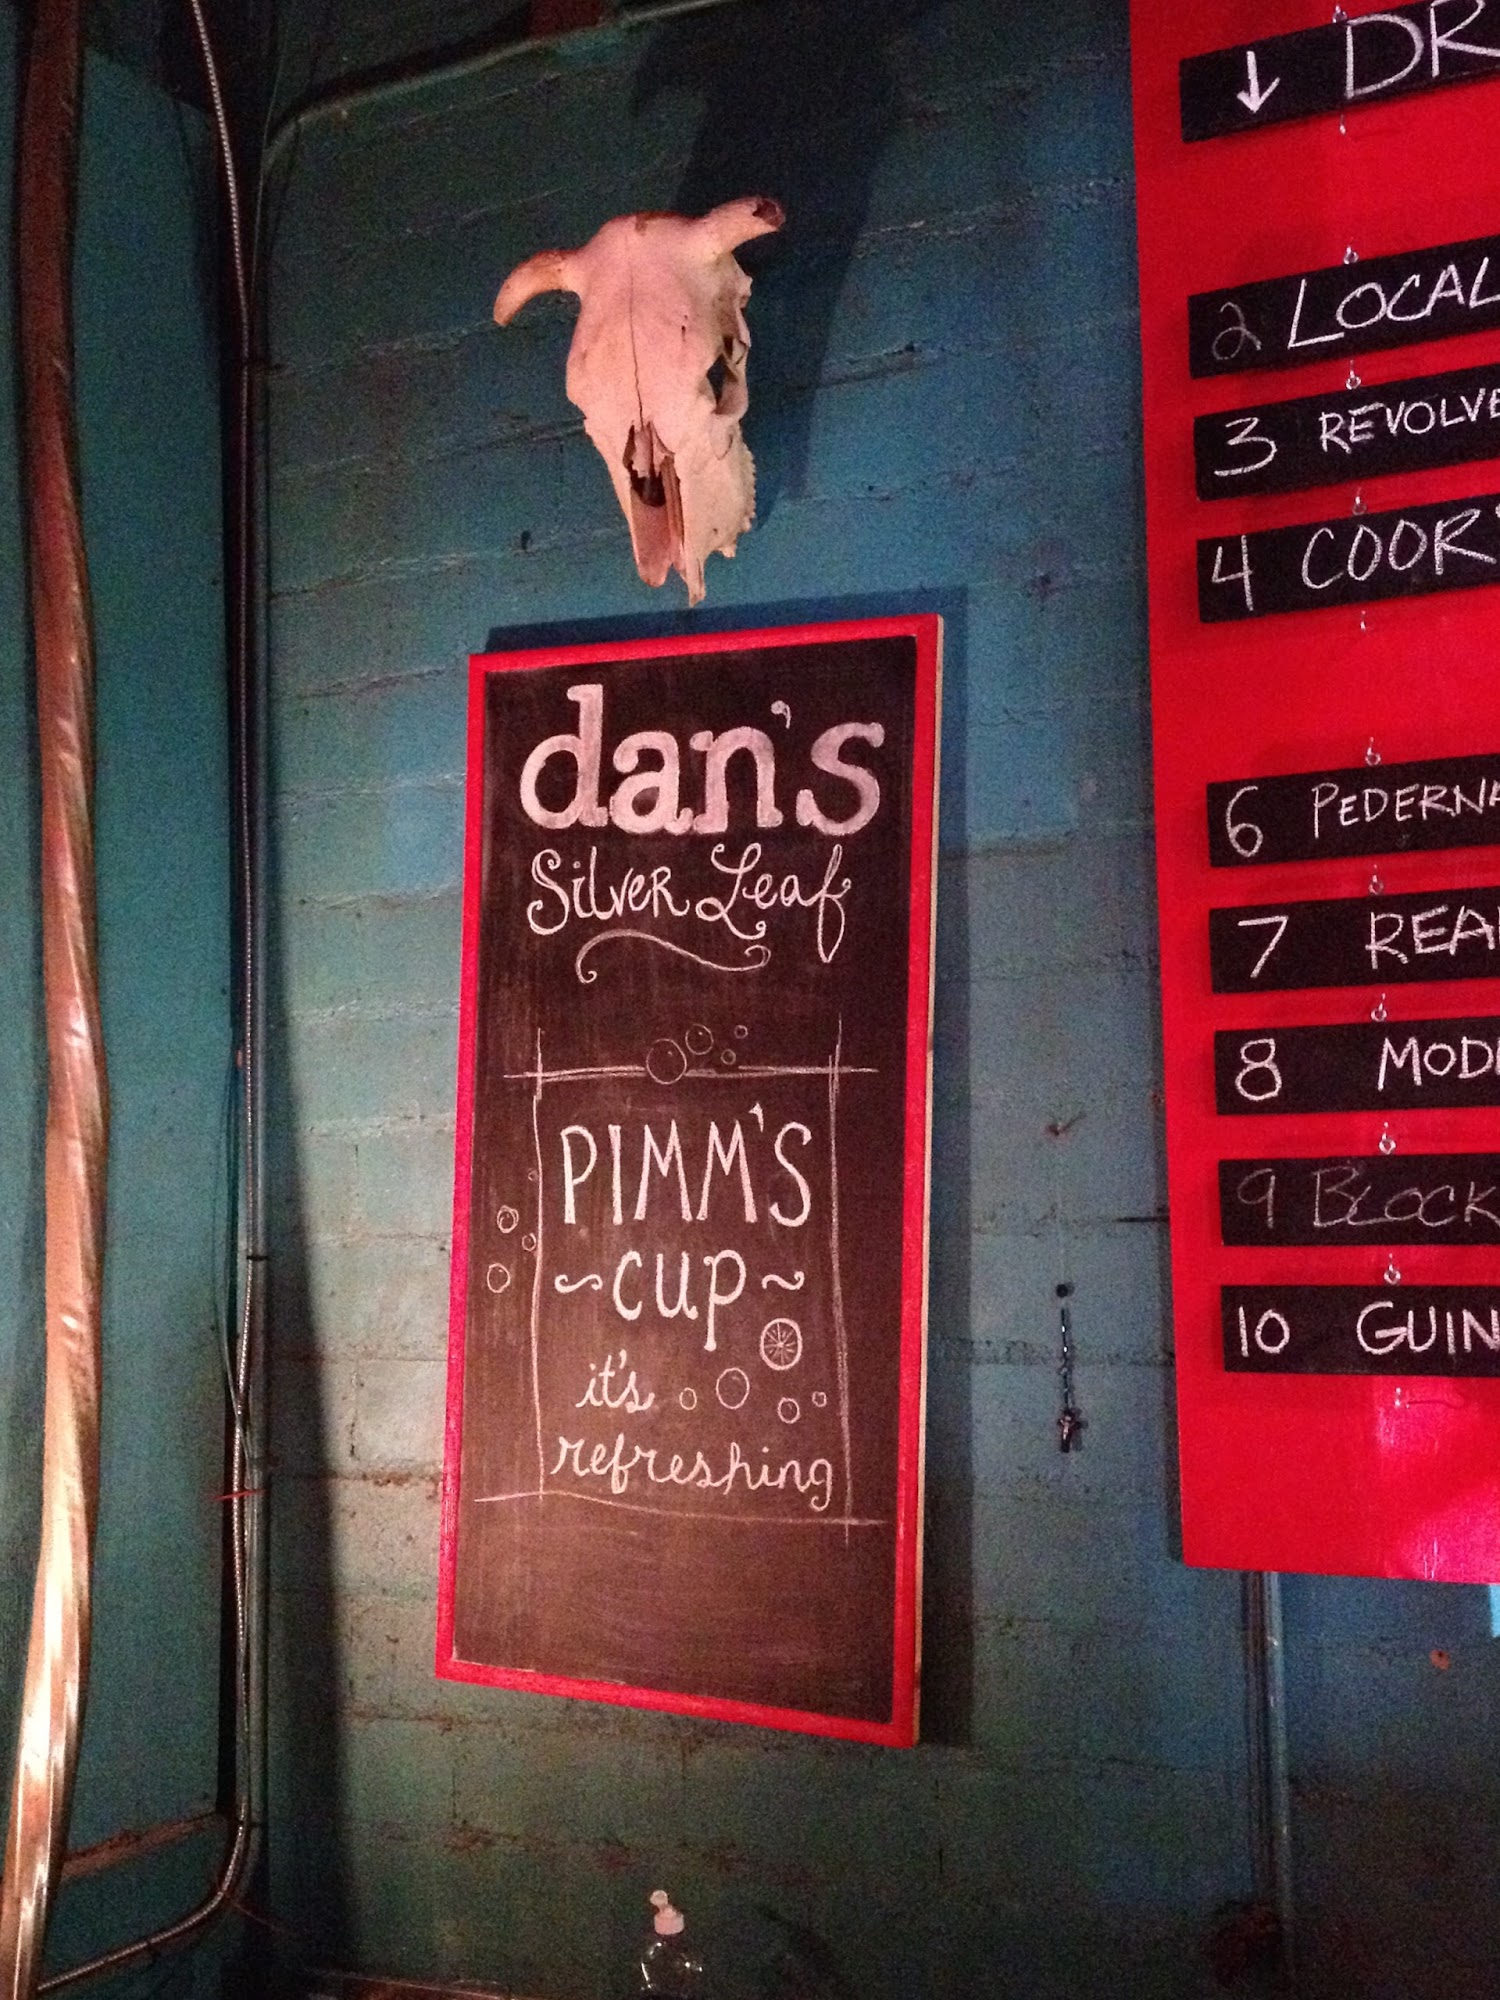 dan's
Silver Leaf
PIMM'S
~CUP~
it's
refreshing
↓ DR
2 LOCAL
3 REVOLVE
4 COORS
6 PEDERNA
7 REA
8 MOD
9 BLOCK
10 GUIN